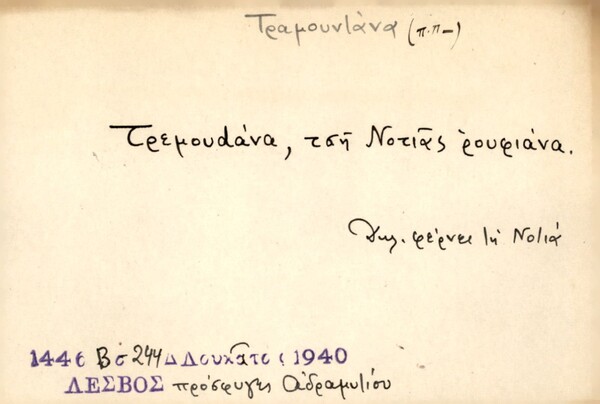 Τραμουντάνα (π.π-)
Τρεμουdάνα, τσῆ Νοτιᾶς ῥουφιάνα.
Δηλ. φέρνει τη Νοτιά
1446 Β σ 244 Δ Λουκᾶτος 1940
ΛΕΣΒΟΣ πρόσφυγες Ἀδραμυτίου